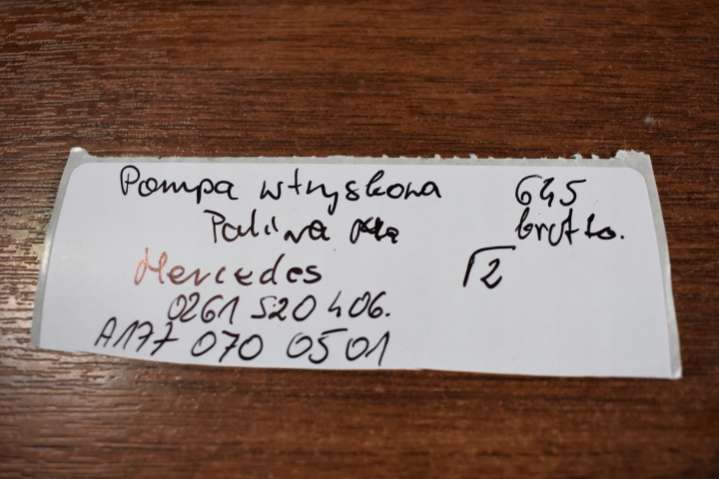 Pompa wtryskowa 645
Paliwa brutto.
Mercedes √2
0261 520 406.
A177 070 0501